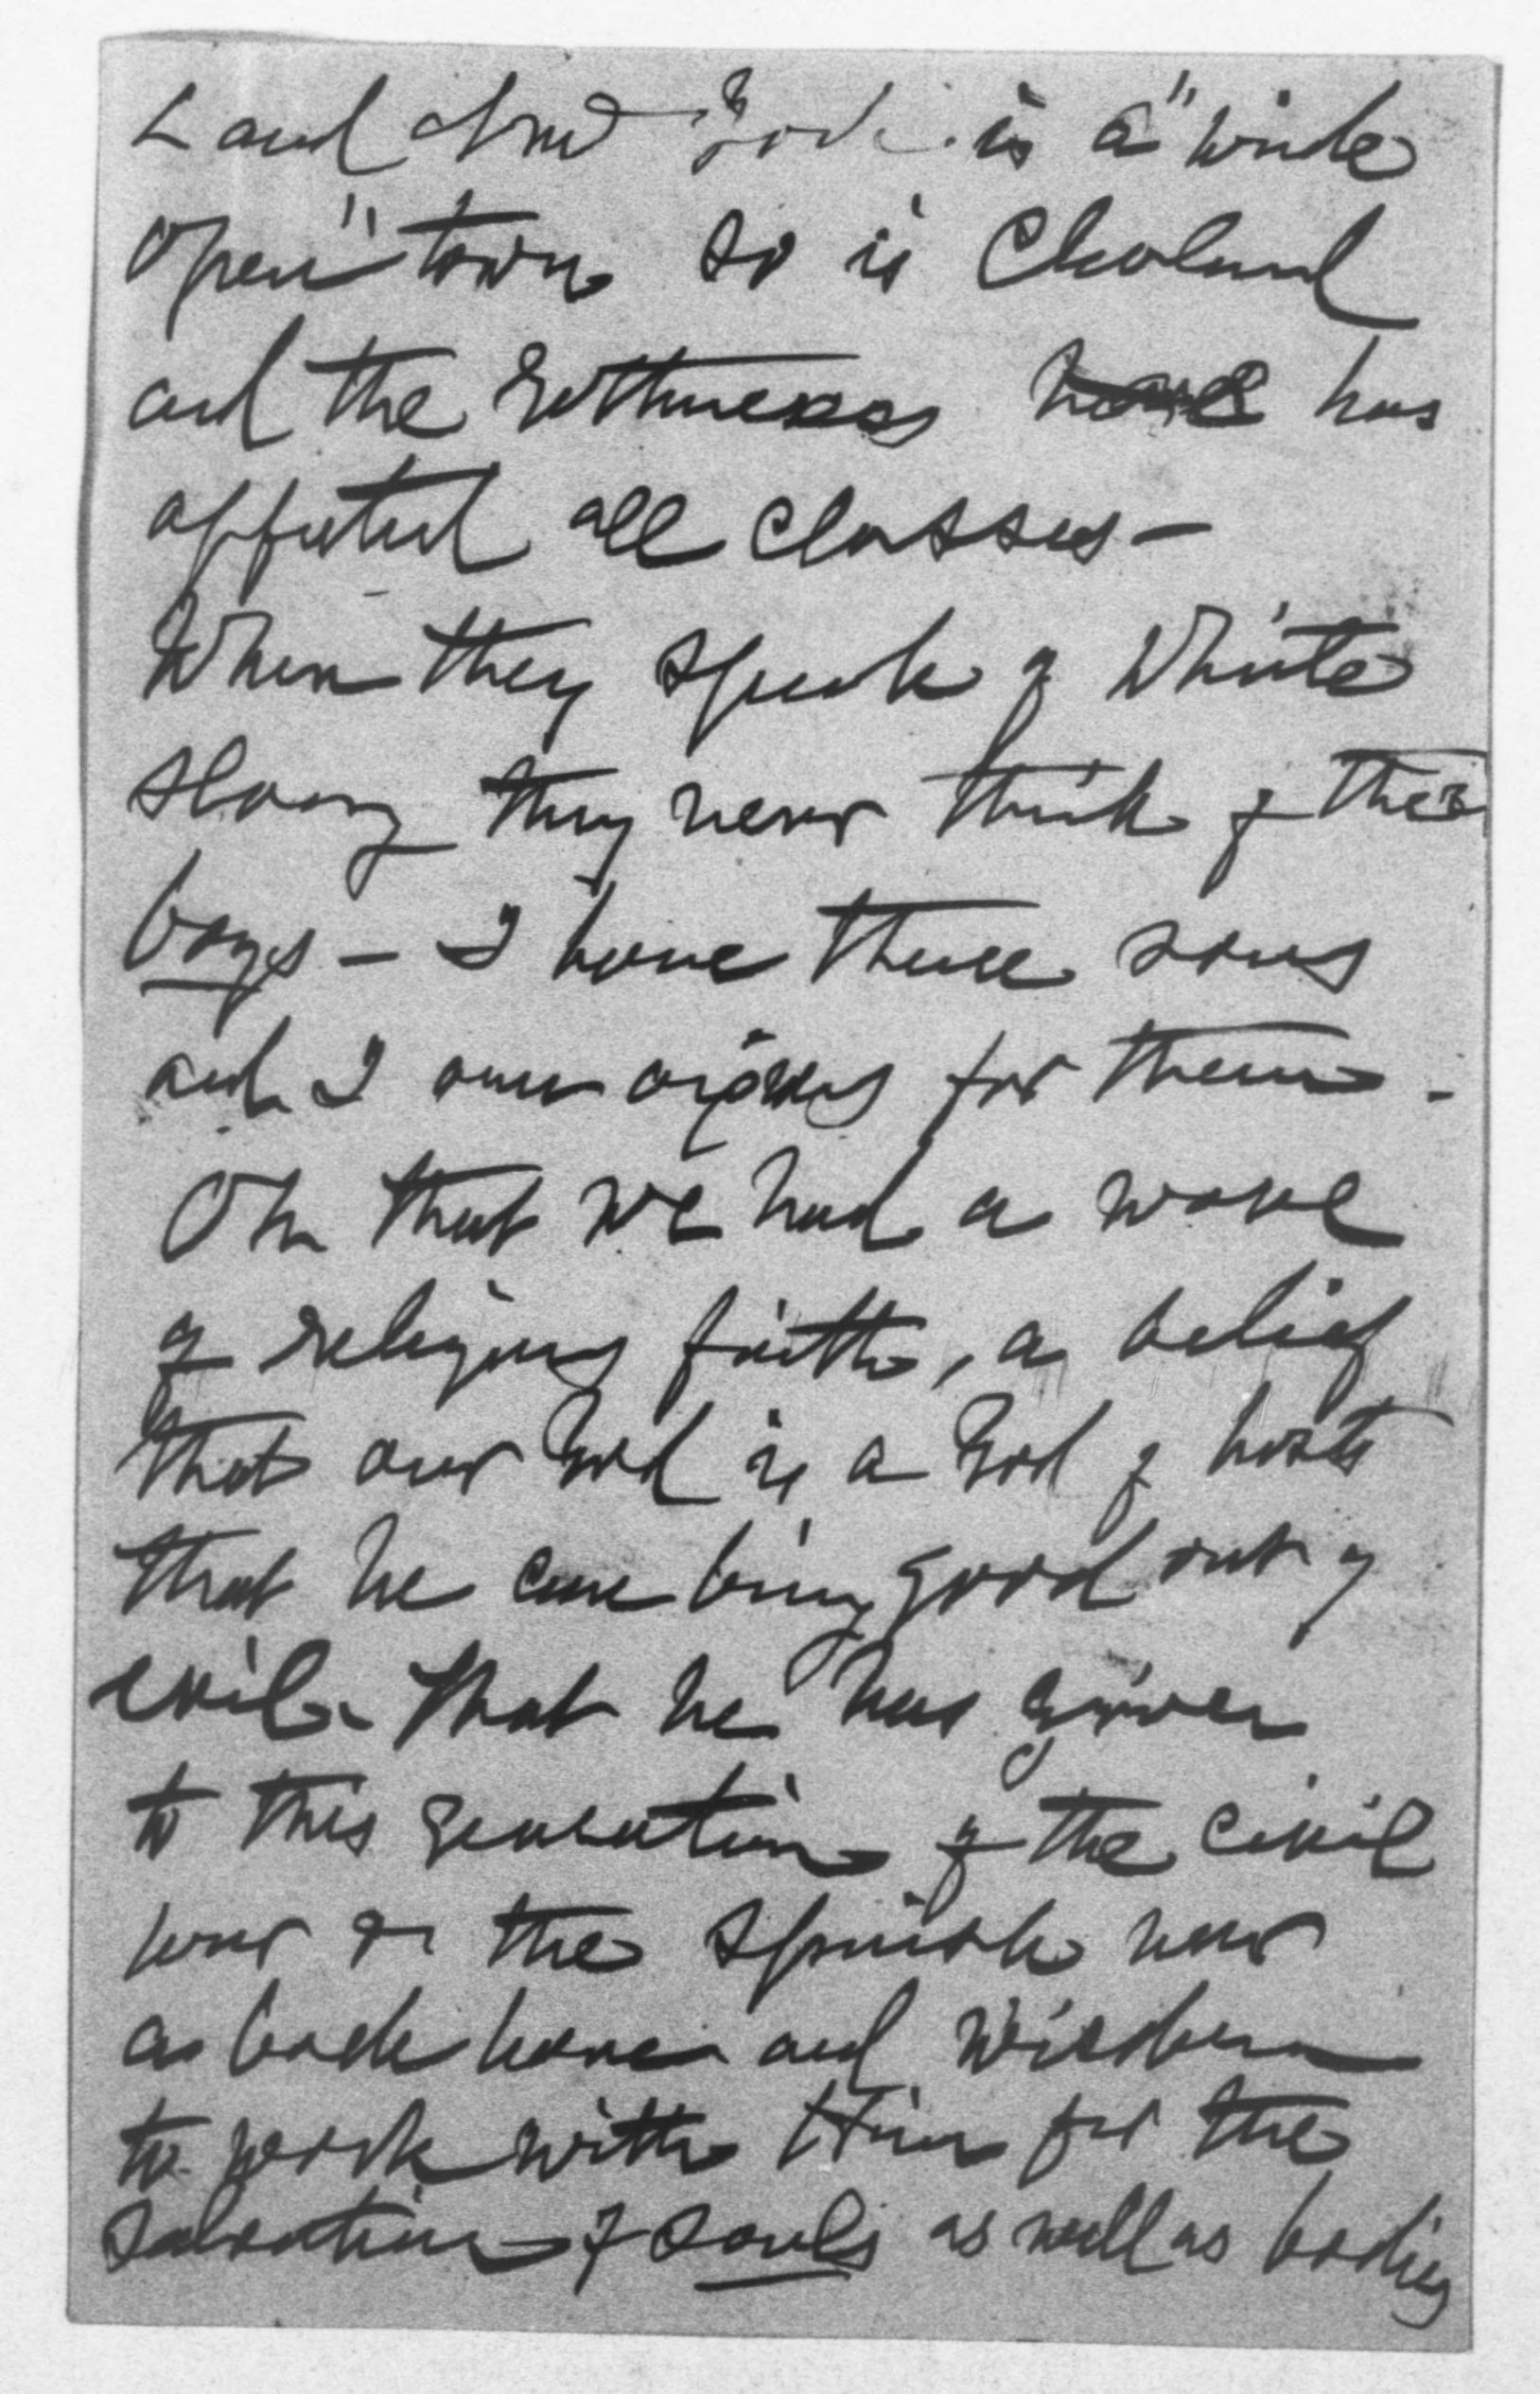 Land New York is a "wide
open" town so is Cleveland
and the rottenness have has
affected all classes —
When they speak of White
slavery they never think of the
boys — I have three sons
and I am anxious for them -
Oh that we had a wave
of religious faith, a belief
that our God is a God of hosts
that he can bring good out of
evil - that he has given
to this generation of the civil
war or the Spanish war
a back bone and wisdom
to work with Him for the
salvation of souls as well as bodies